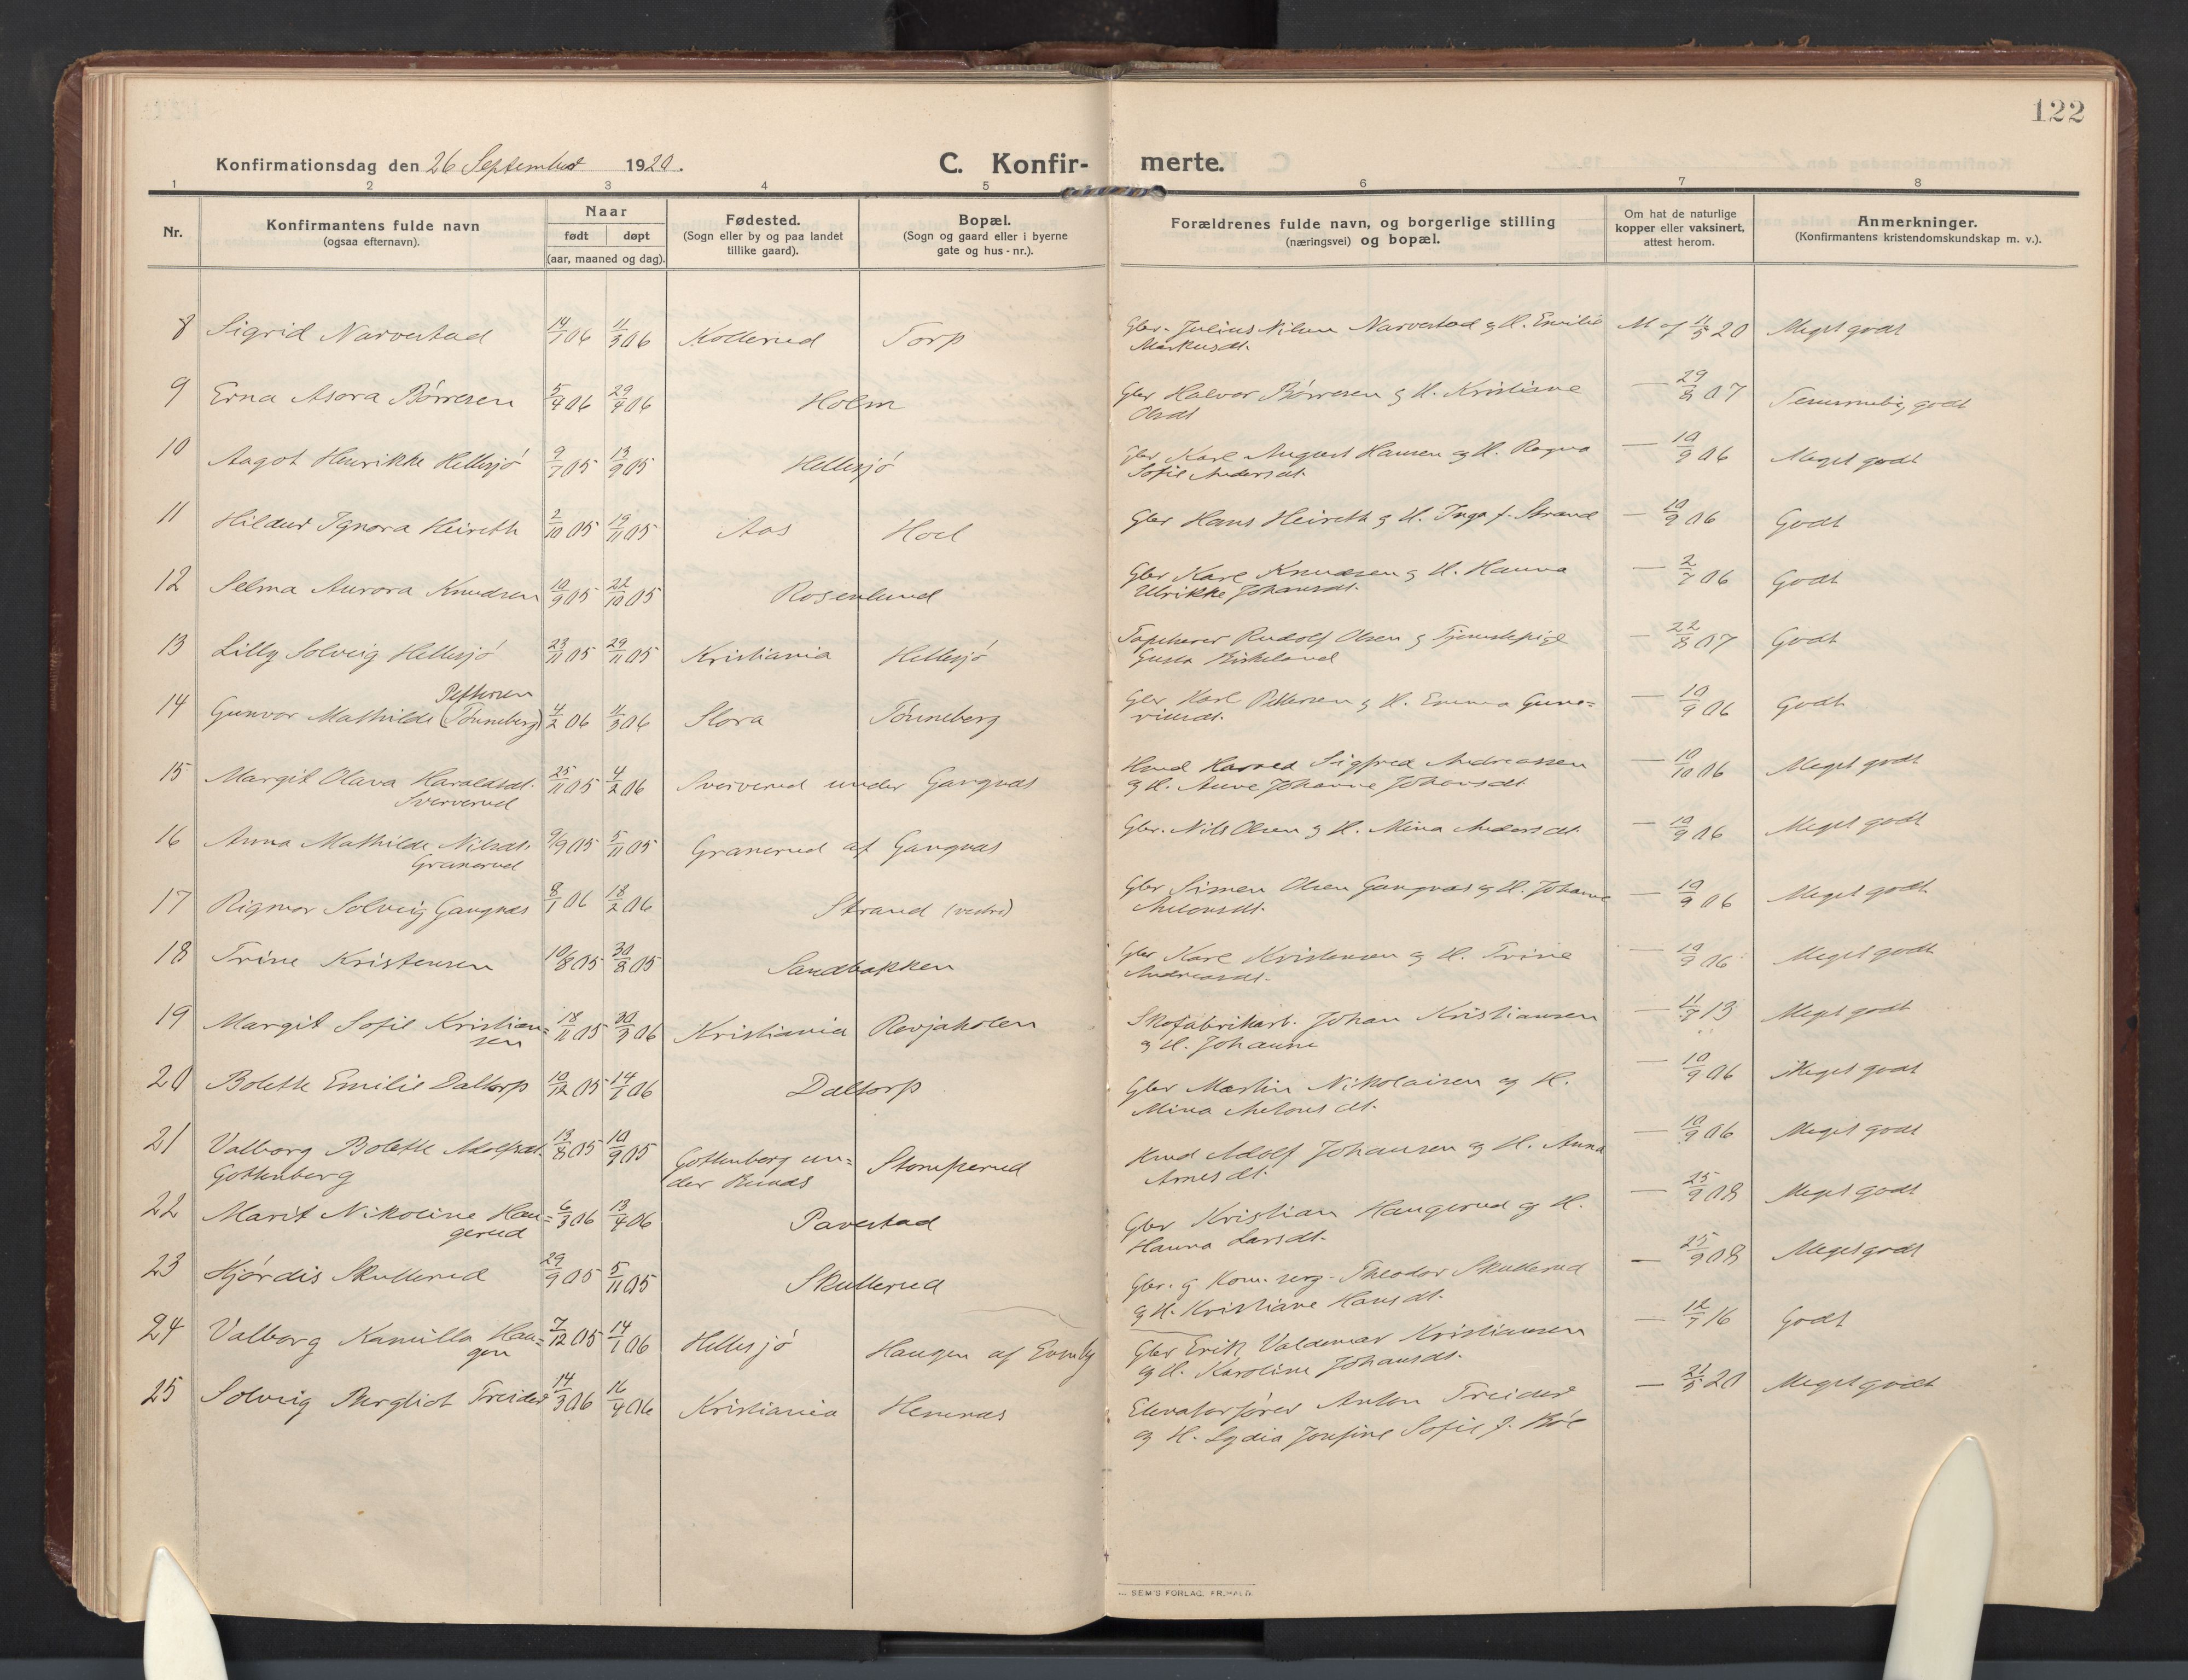 122
Konfirmationsdag den 26 September 1920.
C. Konfir- merte.
1 2 3 4 5 6 7 8
Nr.
Konfirmantens fulde navn
(ogsaa efternavn).
Naar
født døpt
(aar, maaned og dag).
Fødested.
(Sogn eller by og paa landet
tillike gaard).
Bopæl.
(Sogn og gaard eller i byerne
gate og hus-nr.).
Forældrenes fulde navn, og borgerlige stilling
(næringsvei) og bopæl.
Om hat de naturlige
kopper eller vaksinert,
attest herom.
Anmerkninger.
(Konfirmantens kristendomskundskap m. v.).
8 Sigrid Narvestad 14/1 06 11/3 06 Kollerud Torp Gbr. Julius Nilsen Narvestad og H. Emilie M af 11/5 20 Meget godt
Markusdt.
9 Erna Asora Börresen 5/4 06 29/4 06 Holm Gbr Halvor Börresen og H. Kristiane — 29/8 07 Temmelig godt
Olsdt
10 Aagot Henrikke Hellesjö 9/7 05 13/9 05 Hellesjö Gbr Karl August Hansen og H. Ragna — 10/9 06 Meget godt
Sofie Andersdt.
11 Hildur Ignora Heireth 2/10 05 19/11 05 Aas Hoel Gbr Hans Heireth og H. Inga f. Strand — 10/9 06 Godt
12 Selma Aurora Knudsen 10/9 05 22/10 05 Rosenlund Gbr Karl Knudsen og H. Hanna — 2/7 06 Godt
Ulrikke Johansdt.
13 Lilly Solveig Hellesjö 23/11 05 29/11 05 Kristiania Hellesjö Tapetserer Rudolf Olsen og Tjenestepige — 22/8 07 Godt
Gusta
Pettersen
14 Gunvor Mathilde (Tönneberg) 4/2 06 11/3 06 Slora Tönneberg Gbr Karl Pettersen og H. Emma Gune= — 10/9 06 Godt
riusdt.
15 Margit Olava Haraldsdt. 25/11 05 4/2 06 Sververud under Gangnæs Hmd Harald Sigfred Andreassen — 10/10 06 Meget godt
Sververud og H. Anne Johanne Johansdt
16 Anna Mathilde Nilsdt. 9/9 05 5/11 05 Granerud af Gangnæs Gbr. Nils Olsen og H. Mina Andersdt. — 10/9 06 Meget godt
Granerud
17 Rigmor Solveig Gangnæs 8/1 06 18/2 06 Strand (vestre) Gbr Simen Olsen Gangnæs og H. Johanne — 10/9 06 Meget godt
Antonsdt.
18 Trine Kristensen 10/8 05 30/8 05 Sandbakken Gbr Karl Kristensen og H. Trine — 10/9 06 Meget godt
Andreasdt.
19 Margit Sofie Kristian= 18/11 05 30/3 06 Kristiania Revjaholen Skofabrikarb. Johan Kristiansen — 11/7 13 Meget godt
sen og H. Johanne
20 Bolette Emilie Daltorp 10/12 05 14/1 06 Daltorp Gbr Martin Nikolaisen og H. — 10/9 06 Meget godt
Mina Antonsdt.
21 Valborg Bolette Adolfsdt. 13/8 05 10/9 05 Gottenborg un= Stomperud Hmd Adolf Johansen og H. Anna — 10/9 06 Meget godt
Gottenberg der Bunæs Arnesdt.
22 Marit Nikoline Hau= 6/3 06 13/4 06 Pavestad Gbr Kristian Haugerud og H. — 25/9 08 Meget godt
gerud Hanna Larsdt.
23 Hjördis Skullerud 29/9 05 5/11 05 Skullerud Gbr. og Kom. serg. Theodor Skullerud — 25/9 08 Meget godt
og H. Kristiane Hansdt.
24 Valborg Kamilla Hau= 7/12 05 14/1 06 Hellesjö Haugen af Evenby Gbr Erik Valdemar Kristiansen — 12/7 16 Godt
gen og H. Karoline Johansdt.
25 Solveig Bergliot Treider 14/3 06 16/4 06 Kristiania Hemnæs Elevatorförer Anton Treider — 21/5 20 Meget godt
og H. Lydia Josefine Sofie f. Böe
SEM'S FORLAG, FR.HALD.